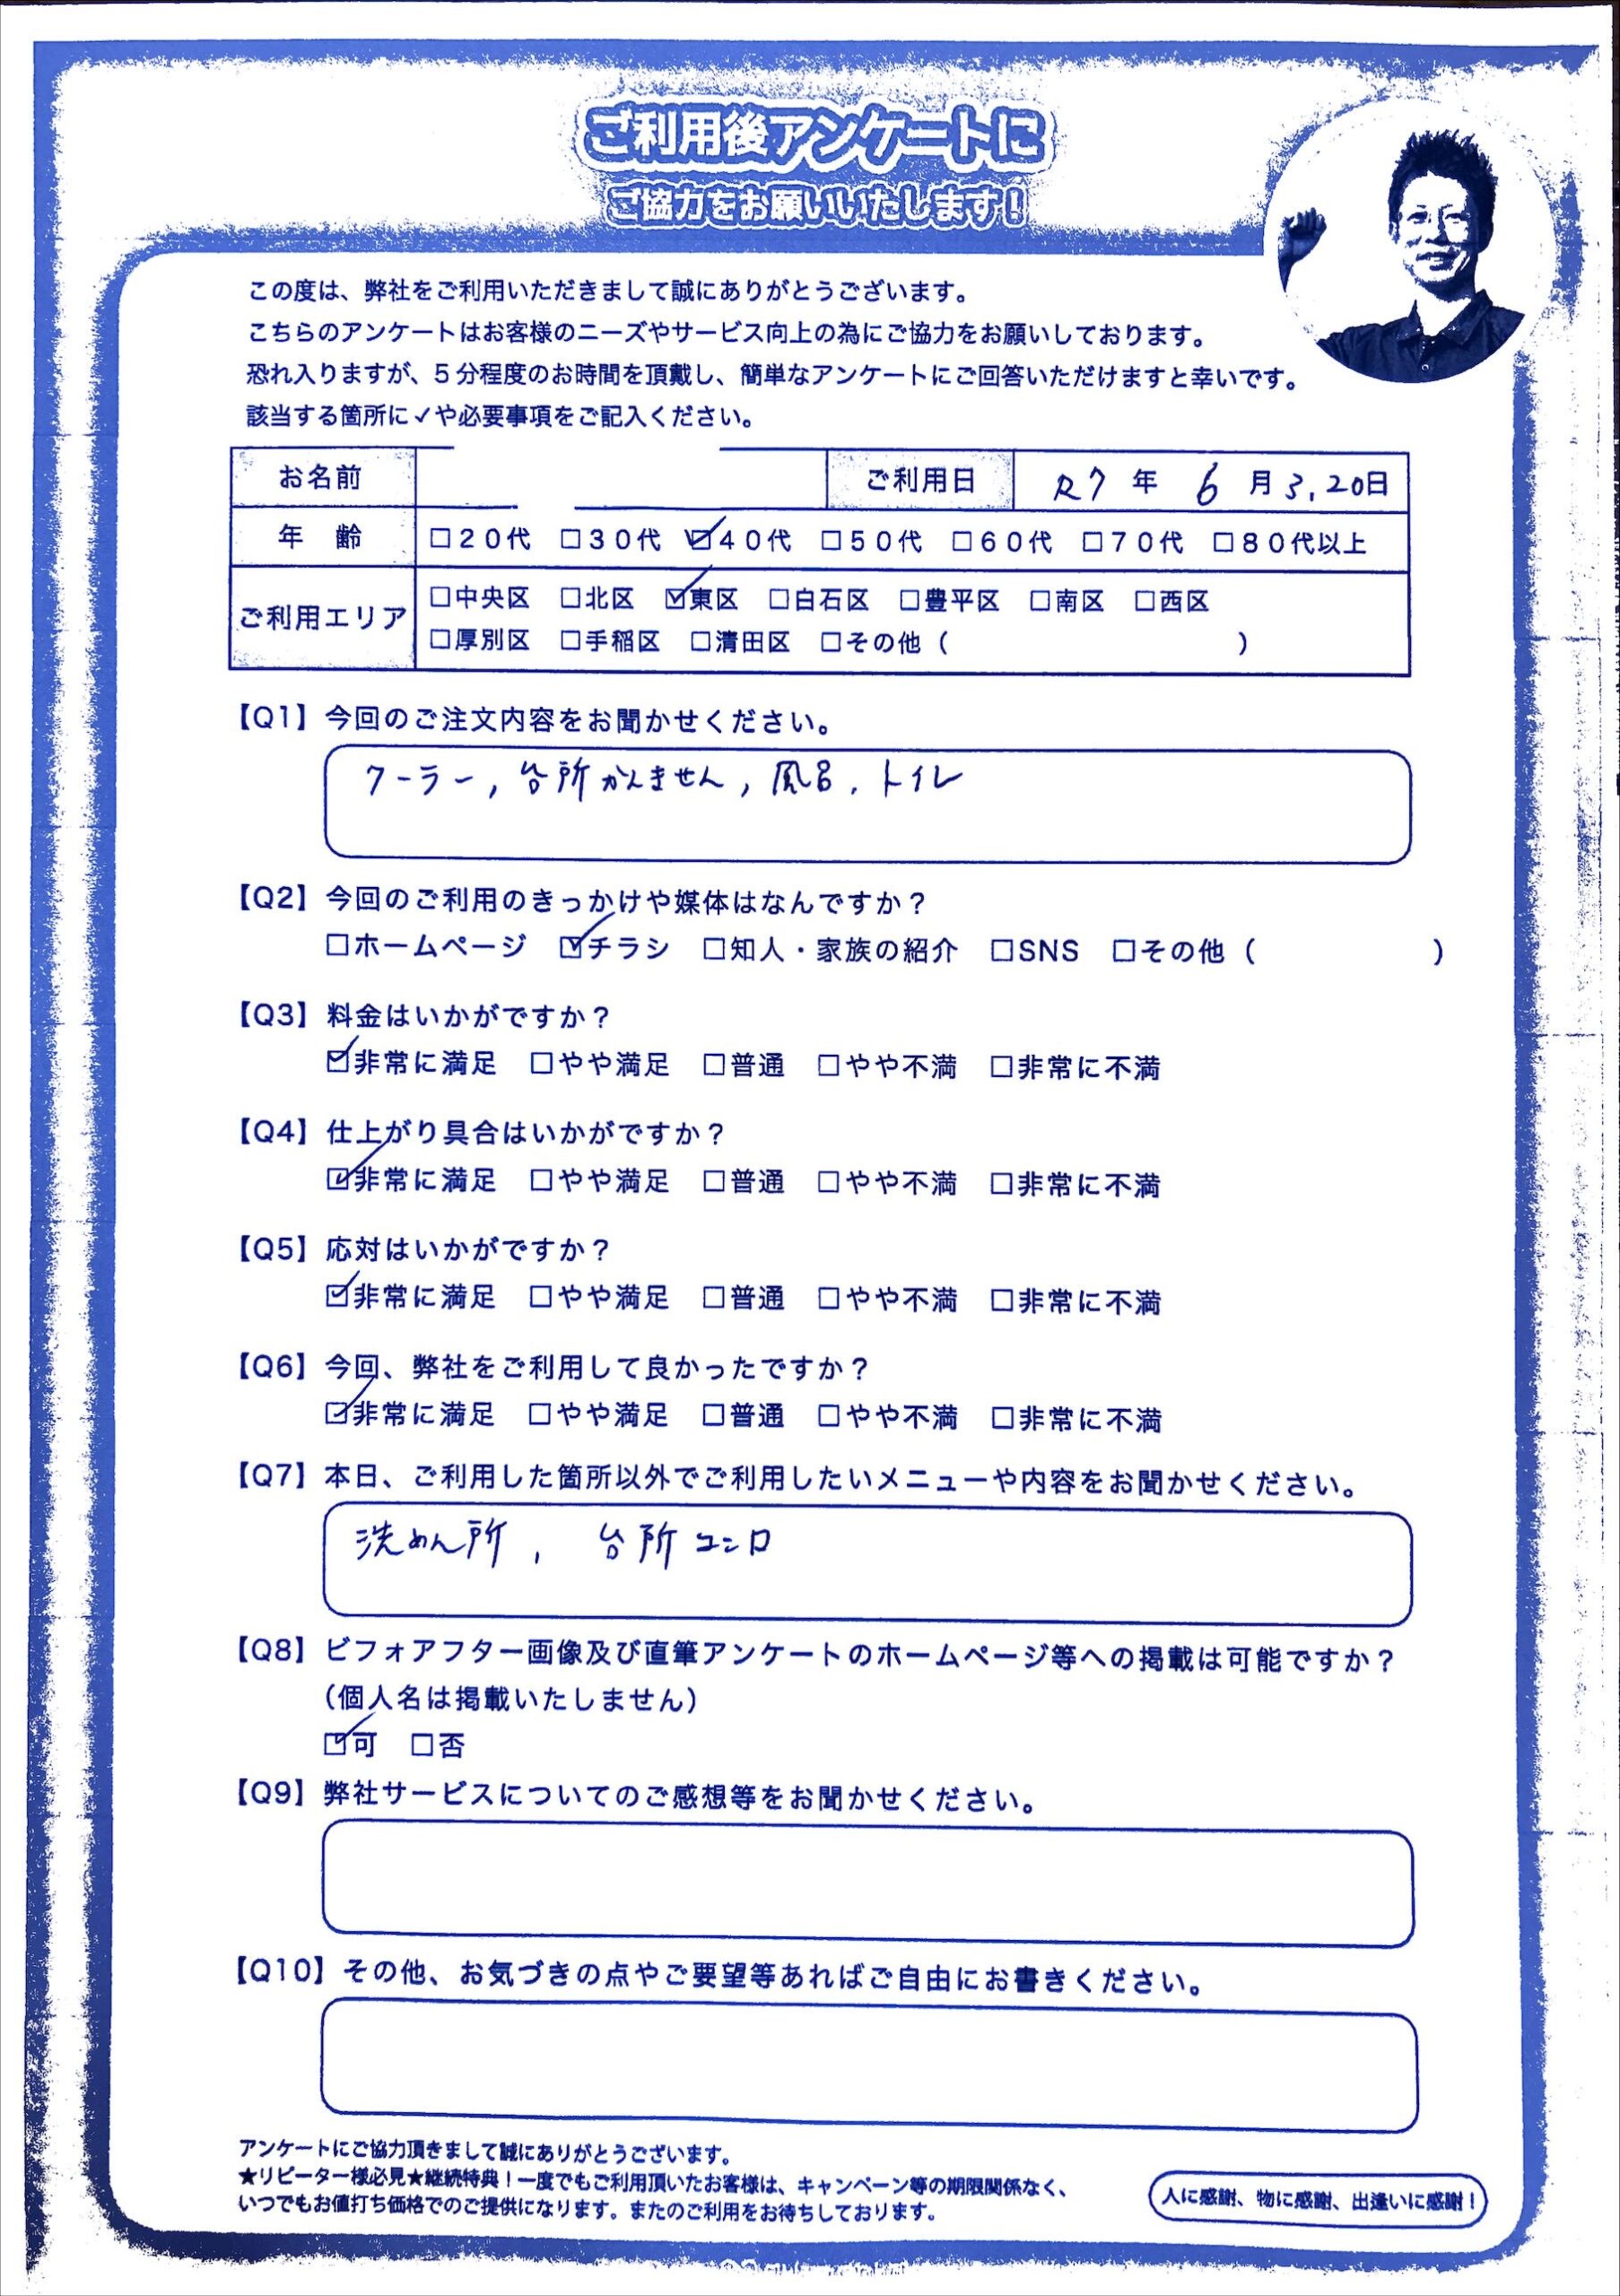 ご利用後アンケートに
ご協力をお願いいたします！
この度は、弊社をご利用いただきまして誠にありがとうございます。
こちらのアンケートはお客様のニーズやサービス向上の為にご協力をお願いしております。
恐れ入りますが、5分程度のお時間を頂戴し、簡単なアンケートにご回答いただけますと幸いです。
該当する箇所に✓や必要事項をご記入ください。
お名前 ご利用日 R7年 6月3,20日
年 齢 □20代 □30代 ☑40代 □50代 □60代 □70代 □80代以上
ご利用エリア □中央区 □北区 ☑東区 □白石区 □豊平区 □南区 □西区
□厚別区 □手稲区 □清田区 □その他（ ）
【Q1】今回のご注文内容をお聞かせください。
クーラー，台所かんきせん，風呂．トイレ
【Q2】今回のご利用のきっかけや媒体はなんですか？
□ホームページ ☑チラシ □知人・家族の紹介 □SNS □その他（ ）
【Q3】料金はいかがですか？
☑非常に満足 □やや満足 □普通 □やや不満 □非常に不満
【Q4】仕上がり具合はいかがですか？
☑非常に満足 □やや満足 □普通 □やや不満 □非常に不満
【Q5】応対はいかがですか？
☑非常に満足 □やや満足 □普通 □やや不満 □非常に不満
【Q6】今回、弊社をご利用して良かったですか？
☑非常に満足 □やや満足 □普通 □やや不満 □非常に不満
【Q7】本日、ご利用した箇所以外でご利用したいメニューや内容をお聞かせください。
洗めん所， 台所コンロ
【Q8】ビフォアフター画像及び直筆アンケートのホームページ等への掲載は可能ですか？
（個人名は掲載いたしません）
☑可 □否
【Q9】弊社サービスについてのご感想等をお聞かせください。
【Q10】その他、お気づきの点やご要望等あればご自由にお書きください。
アンケートにご協力頂きまして誠にありがとうございます。
★リピーター様必見★継続特典！一度でもご利用頂いたお客様は、キャンペーン等の期限関係なく、
いつでもお値打ち価格でのご提供になります。またのご利用をお待ちしております。
人に感謝、物に感謝、出逢いに感謝！